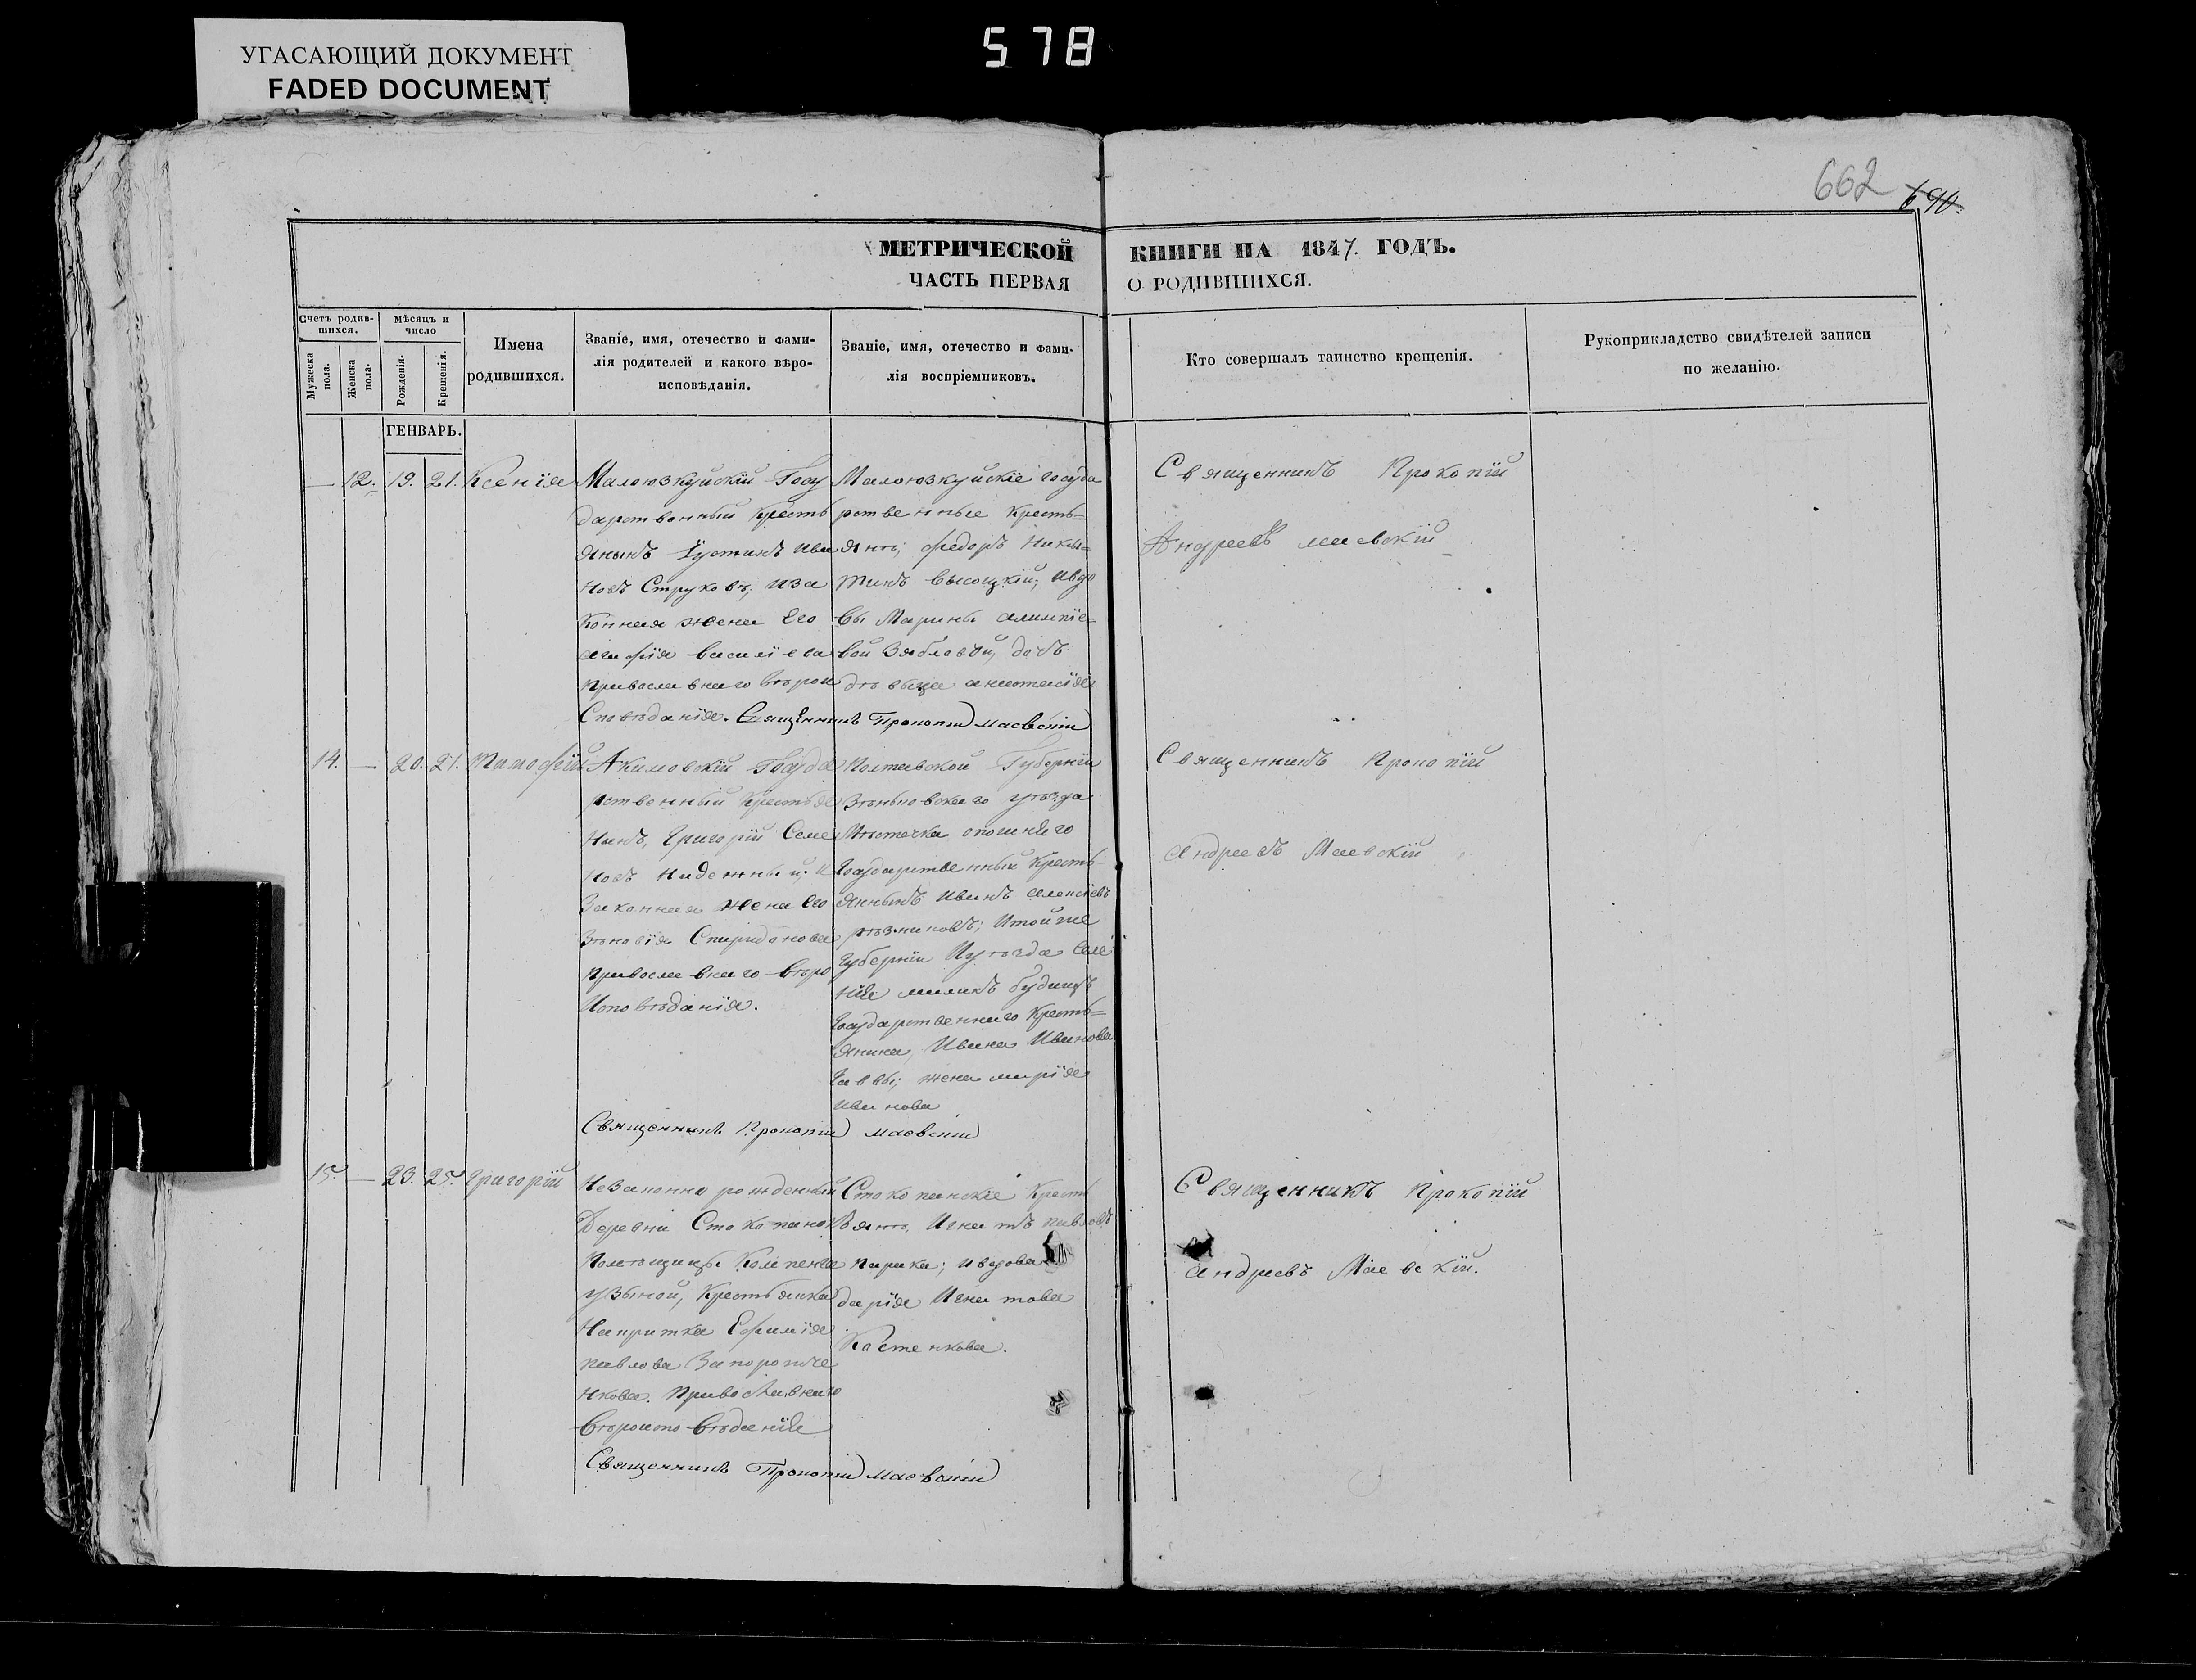 УГАСАЮЩИЙ ДОКУМЕНТ
FADED DOCUMENT
578
662 690.
МЕТРИЧЕСКОЙ КНИГИ НА 1847. ГОДЪ.
ЧАСТЬ ПЕРВАЯ О РОДИВШИХСЯ.
Счетъ родив-
шихся.
Мужеска
пола.
Женска
пола.
Мѣсяцъ и
число
Рожденія.
Крещенія.
Имена
родившихся.
Званіе, имя, отечество и фами-
лія родителей и какого вѣро-
исповѣданія.
Званіе, имя, отечество и фами-
лія воспріемниковъ.
Кто совершалъ таинство крещенія.
Рукоприкладство свидѣтелей записи
по желанію.
ГЕНВАРЬ.
— 12. 19. 21. Ксенія
Малоюзкуйскій Госу
дарственный кресть
янинъ Іустинъ Ива
новъ Струковъ; иза
конная жена Его
агафія василіева
православнаго вѣрои
Сповѣданія. Священникъ Прокопій Маевскій
Малоюзкуйскіе госуда
рственные кресть=
янъ, федоръ Ники=
тинъ высоцкій; ивдо
вы Марины алимпіе=
вой Зябловой, дочь
дѣвица анастасія
Священникъ Прокопій
Андреевъ маевскій
14. — 20. 21. Тимофій
Акимовскій Госуда
рственный крестья
нинъ, Григорій Семе
новъ Надежный; и
Законная жена Его
Зѣновія Спиридонова
православнаго вѣро
Исповѣданія.
Полтавской Губерніи
Зѣньковскаго уѣзда
Мѣстечка опошняго
Государственный кресть-
янинъ Иванъ алексіевъ
рѣзниковъ; Итойже
Губерніи Иуѣзда Селе
нія милихъ будищъ
Государственнаго кресть=
янина, Ивана Иванова
Саввы; жена марія
Иванова
Священникъ Прокопій маевскій
Священникъ Прокопій
андреевъ Маевскій
15. — 23. 25. Григорій
Незаконно рожденный
Деревни Стокопанокъ
Помѣщицы
крестьянка
Ефимія
павлова Запороже
нкова. Православнаго
вѣроисповѣданія
Священникъ Прокопій маевскій
Стокопанскіе кресть
янъ, Игнатъ павловъ
парика; ивдова
дарія Игнатова
Костенкова.
Священникъ Прокопій
андреевъ Маевскій.